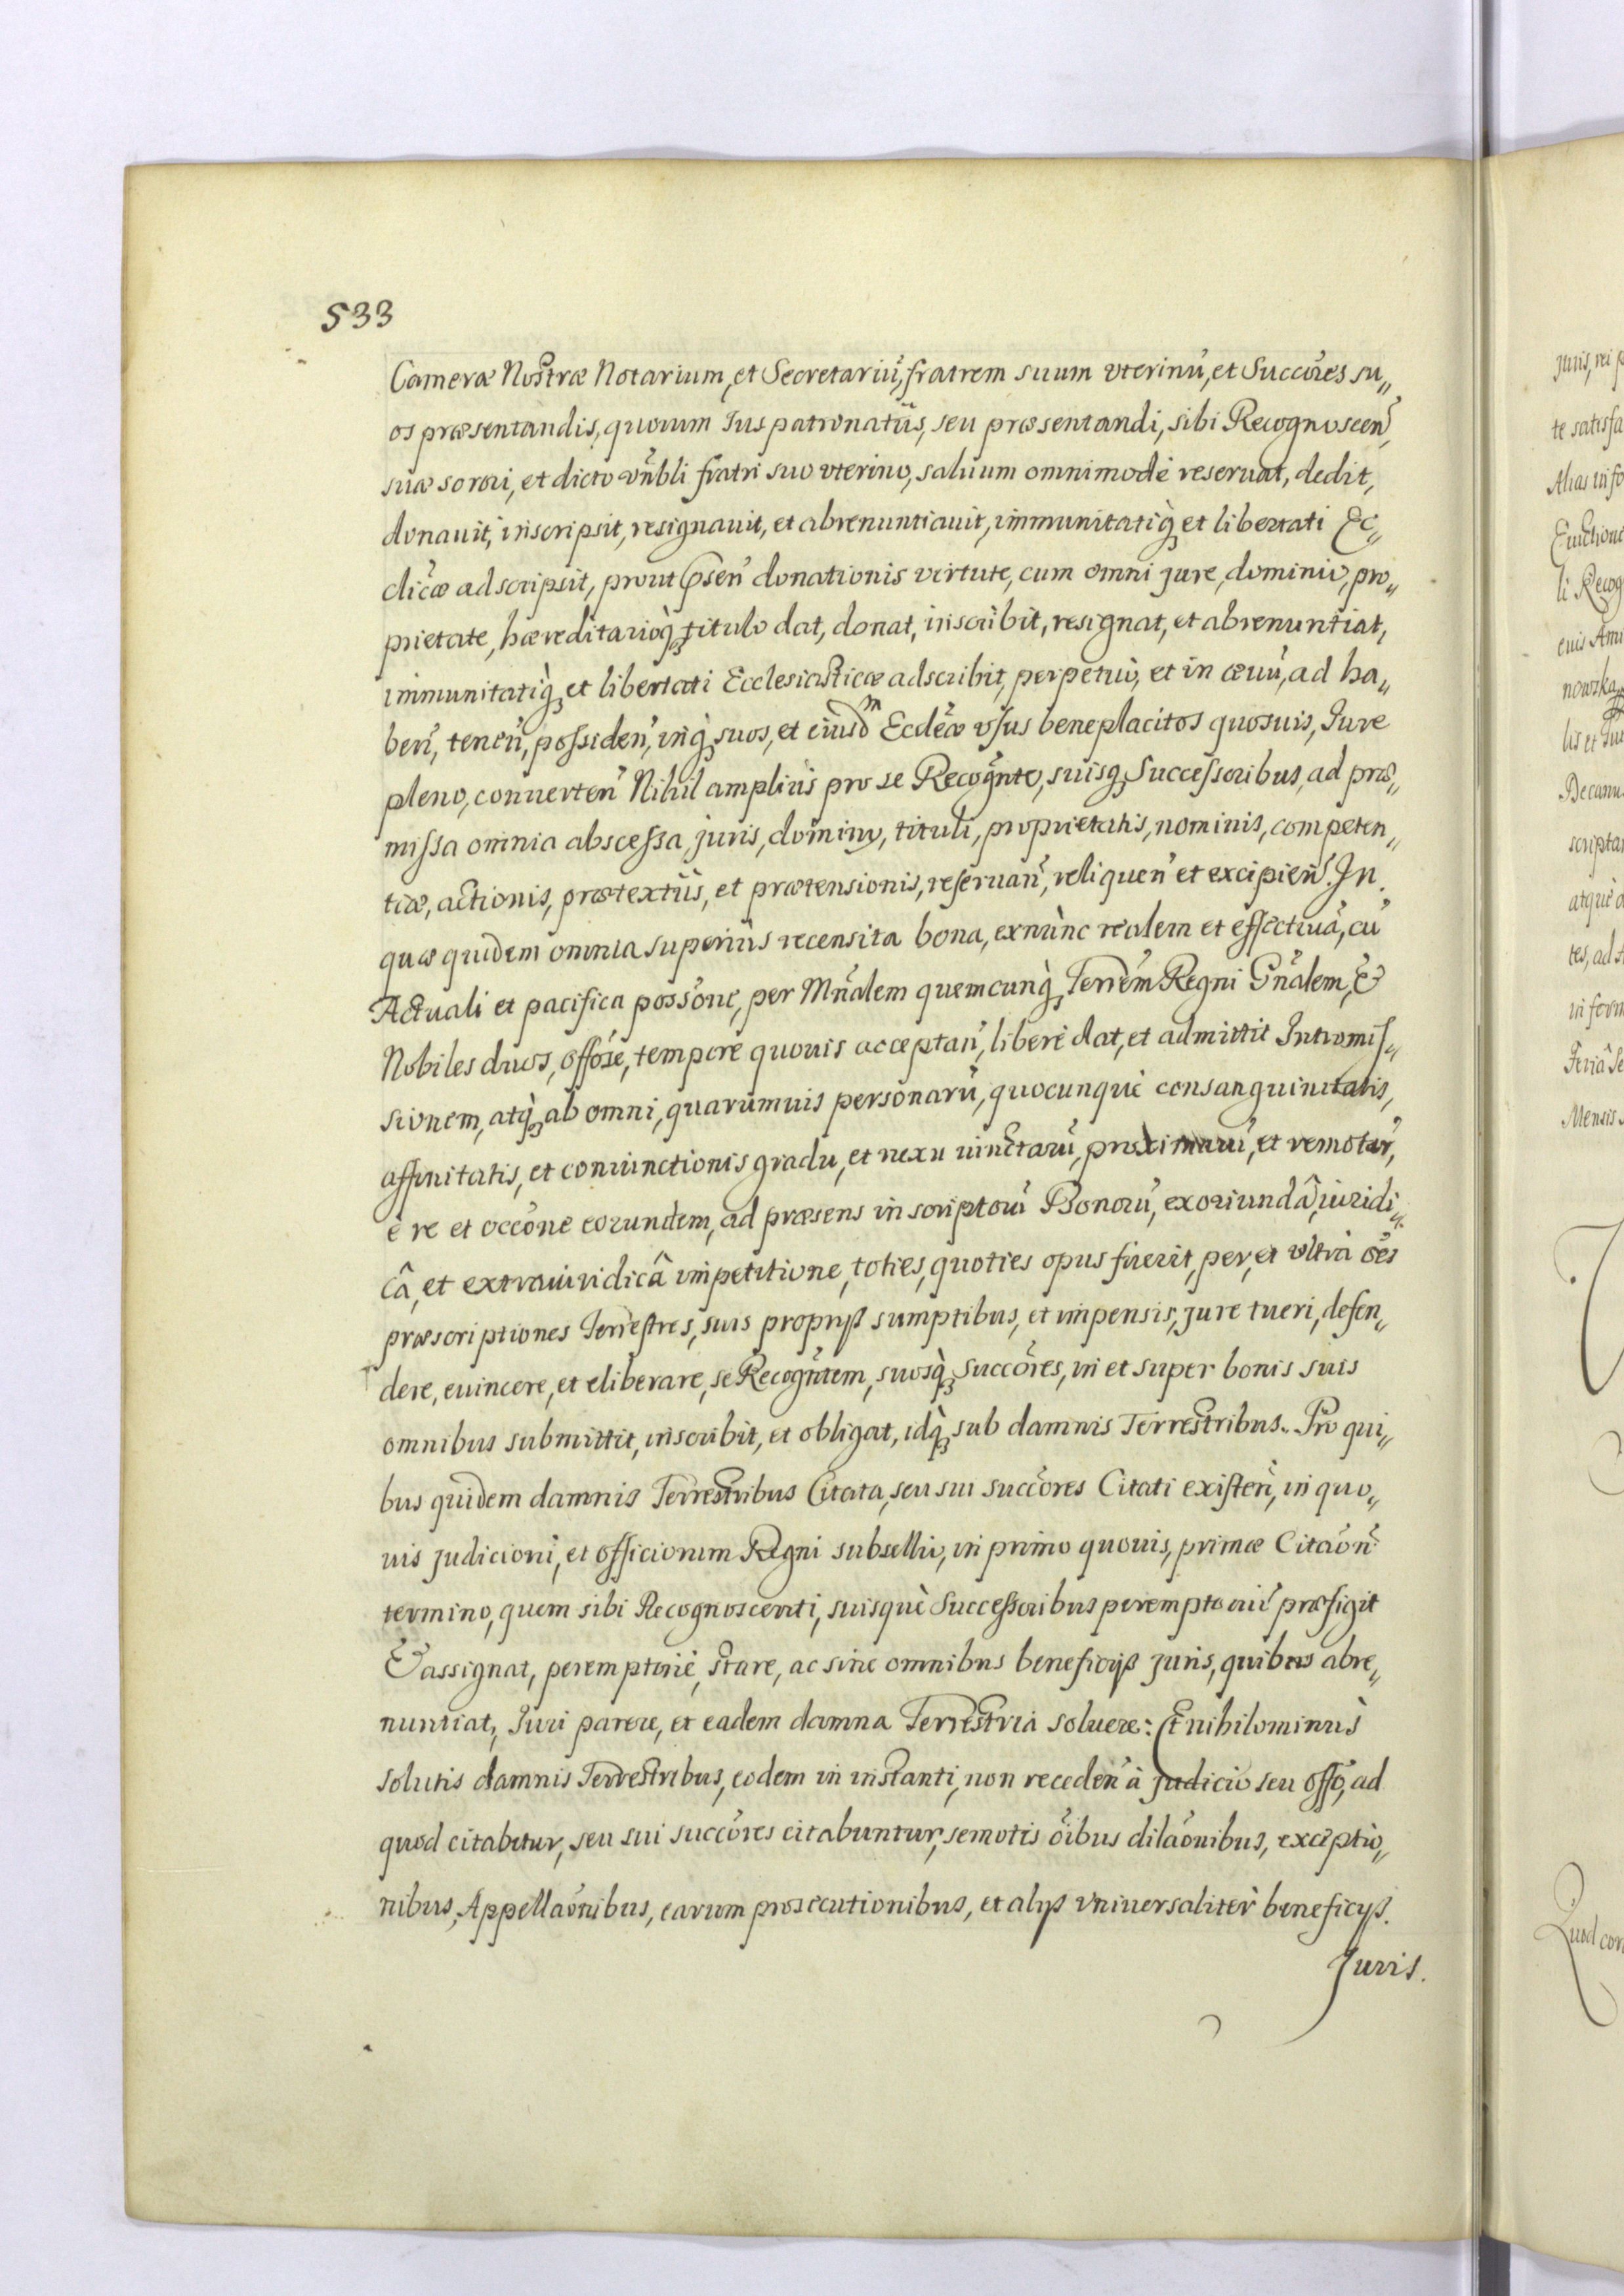 533
Cameræ Nostræ Notarium, et Secretariũ, fratrem suum vterinũ, et Succẽres su„
os præsentandis, quorum Jus patronatũs, seu præsentandi, sibi Recognoscen̄,
suæ sorori, et dicto vñbli fratri suo vterino, saluum omnimodè reseruat, dedit,
donauit, inscripsit, resignauit, et abrenuntiauit, immunitatiq̀ꝫ et libertati Ec„
clicæ̃ adscripsit, prout Psen̄ donationis virtute, cum omni jure, dominio, pro„
prietate, hæreditarioq̀ꝫ titulo dat, donat, inscribit, resignat, et abrenuntiat,
immunitatiq̀ꝫ et libertati Ecclesiasticæ adscribit, perpetuò, et in æuũ, ad ha„
ben̄, tenen̄, possiden̄, inq̀ꝫ suos, et eiusdm Ecclẽæ vsus beneplacitos quosuis, Jure
pleno, conuerten̄ Nihil ampliùs pro se Recogñte, suisqꝫ Successoribus, ad præ„
missa omnia abscessa, juris, dominij, tituli, proprietatis, nominis, competen„
tiæ, actionis, prætextũs, et prætensionis, reseruan̄, reliquen̄ et excipien̄. In
quæ quidem omnia superiùs recensita bona, exnùnc realem et effectiuã, cũ
Actuali et pacifica possõne, per Mñalem quemcunq̀ꝫ Terrẽm Regni Gñalem, &
Nobiles duos, offõse, tempore quouis acceptan̄, liberè dat, et admittit Intromis„
sionem, atq̀ꝫ ab omni, quarumuis personarũ, quocunquè consanguinitatis,
affinitatis, et coniunctionis gradu, et nexu iunctarũ, proximarũ, et remotar̃,
è re et occõne eorundem, ad præsens inscriptorũ Bonorũ, exoriundâ, iuridi„
câ, et extraiuridicâ impetitione, toties, quoties opus fuerit, per, et vltrà oẽs
præscriptiones Terrestres, suis proprijs sumptibus, et impensis, jure tueri, defen„
dere, euincere, et eliberare, se Recogñtem, suosq̀ꝫ Succõres, in et super bonis suis
omnibus submittit, inscribit, et obligat, idq̀ꝫ sub damnis Terrestribus. Pro qui„
bus quidem damnis Terrestribus Citata, seu sui succõres Citati existen̄, in quo„
uis judiciorũ, et officiorum Regni subsellio, in primo quouis, primæ Citaõn̄
termino, quem sibi Recognoscenti, suisquè Successoribus peremptoriũ præfigit
& assignat, peremptoriè, stare, ac sine omnibus beneficijs juris, quibus abre„
nuntiat, Juri parere, et eadem damna Terrestria soluere: Et nihilominùs
solutis damnis Terrestribus, eodem in instanti, non receden̄ à judicio seu offõ, ad
quod citabitur, seu sui succõres citabuntur, semotis oĩbus dilaõnibus, exceptio„
nibus, Appellaõnibus, earum prosecutionibus, et alijs vniuersalitèr beneficijs.
Juris.